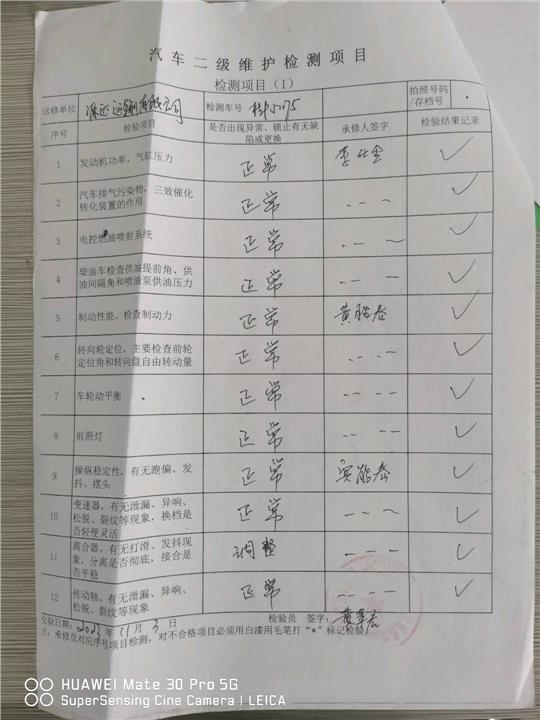 汽车二级维护检测项目
检测项目（1）
送修单位
检测车号
拍照号码
/存档号
序号 检验项目 是否出现异常、锁止有无缺 承修人签字 检验结果记录
陷或更换
1 发动机功率，气缸压力 正常 ✓
2 汽车排气污染物，三效催化 正常 ✓
转化装置的作用
3 电控燃油喷射系统 正常 ✓
4 柴油车检查供油提前角、供 正常 ✓
油间隔角和喷油泵供油压力
5 制动性能、检查制动力 正常 ✓
6 转向轮定位，主要检查前轮 正常 ✓
定位角和转向盘自由转动量
7 车轮动平衡 正常 ✓
8 前照灯 正常 ✓
9 操纵稳定性，有无跑偏、发 正常 ✓
抖、摆头
10 变速器，有无泄漏、异响、 正常 ✓
松脱、裂纹等现象，换档是
否轻便灵活
11 离合器，有无打滑、发抖现 调整 ✓
象，分离是否彻底，接合是
否平稳
12 传动轴，有无泄漏、异响、 正常 ✓
松脱、裂纹等现象
交验日期：2023年11月3日 检验员 签字：
注：承修员对应序号项目检测，对不合格项目必须用白漆用毛笔打“×”标记检验
HUAWEI Mate 30 Pro 5G
SuperSensing Cine Camera | LEICA